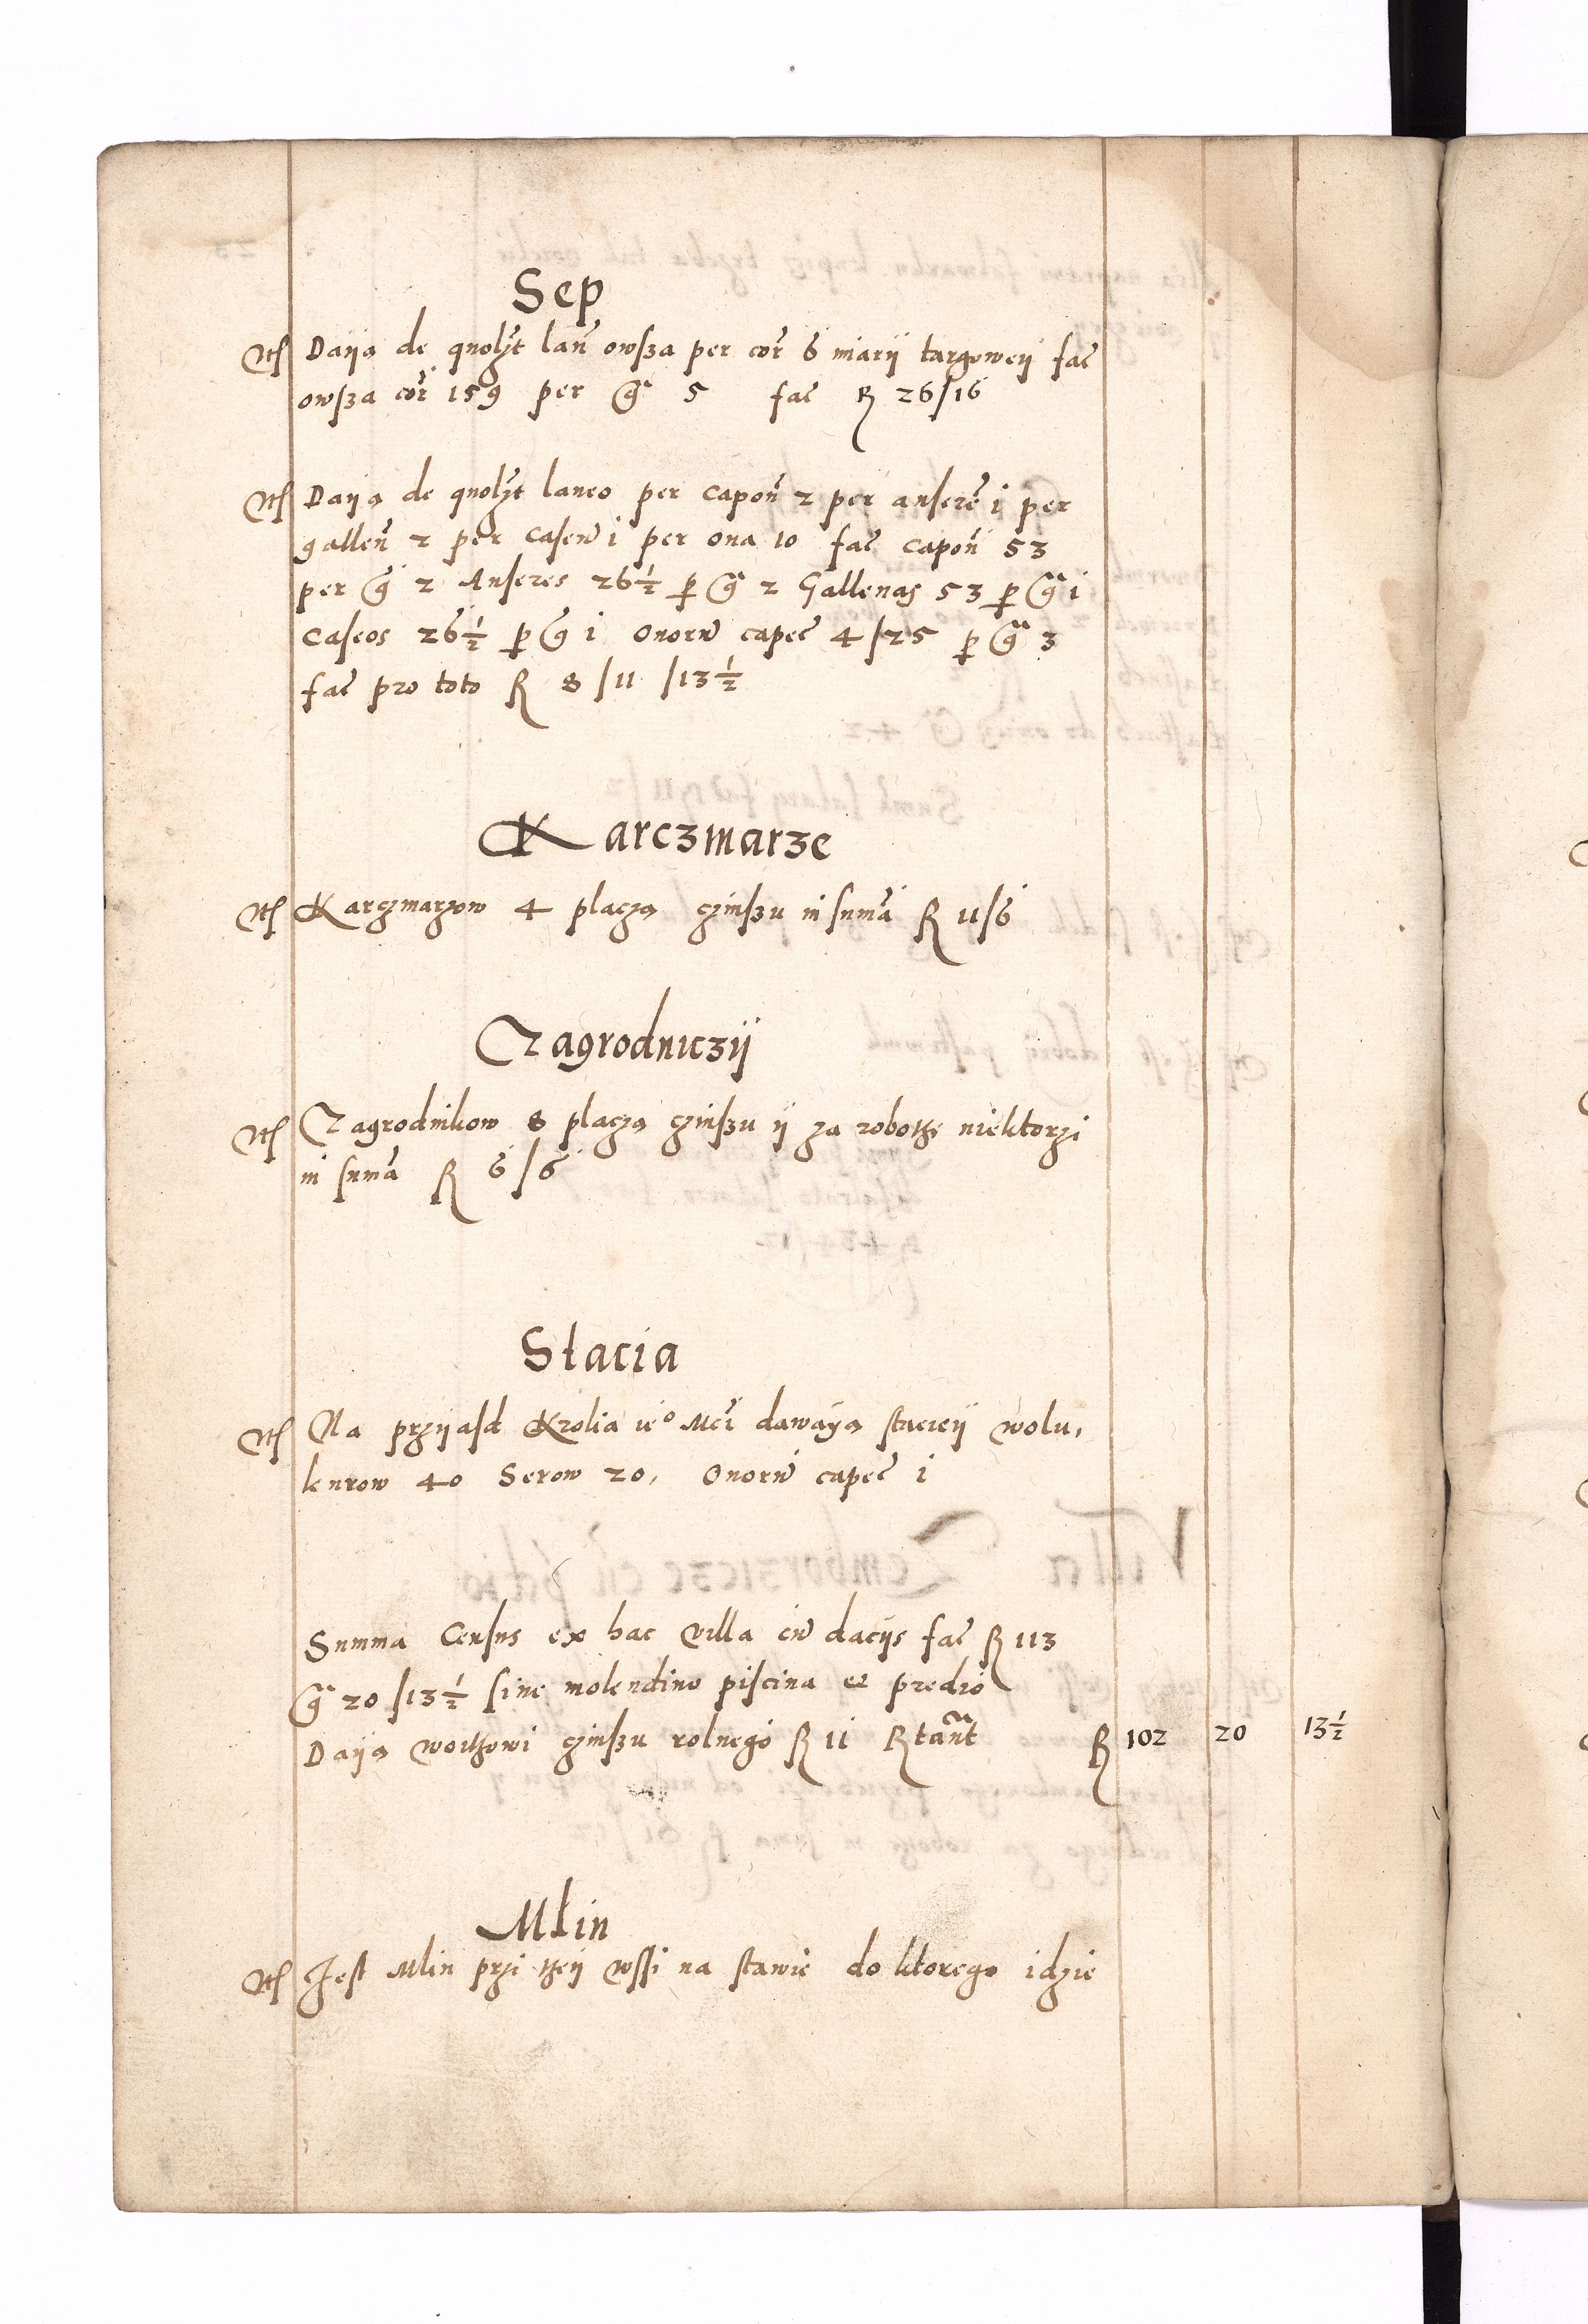 Sep
Itē Daÿą de quolƷt lań owſza per cor̃ 6 miarÿ targoweÿ fać
owſza cor̃ 159 per gr̃ 5 fać R 26/16
Itē Daÿą de quolƷt laneo per capoñ 2 per anſerē i per
gallen̄ 2 per caſeū i per oua 10 fać capoñ 53
per gr̃ 2 Anſeres 26½ ꝑ gr̃ 2 Gallenas 53 ꝑ gr̃ i
Caſeos 26½ ꝑ gr̃ i Ouorū capeć 4/25 ꝑ gr̃ 3
fać pro toto R 8/11/13½
Karczmarze
Itē Karczmarzow 4 płaczą czinſzu in ſumā R 11/6
Zagrodniczÿ
Itē Zagrodnikow 8 płaczą czinſzu ÿ za robothę niektorzi
in ſumā R 6/6
Stacia
Itē Na przÿaſd Krolia ie° Mći dawaÿą ſtacieÿ wolu,
kurow 40 Serow 20, Ouorū capeć i
Summa Cenſus ex hac villa cū dacÿs fać R 113
gr̃ 20/13½ ſine molendino piſcina et predio
Daÿą woithowi czinſzu rolnego R 11 Rtañt R 102 20 13½
Młin
Itē Jeſt Młin przi theÿ wſſi na ſtawie do ktorego idzie